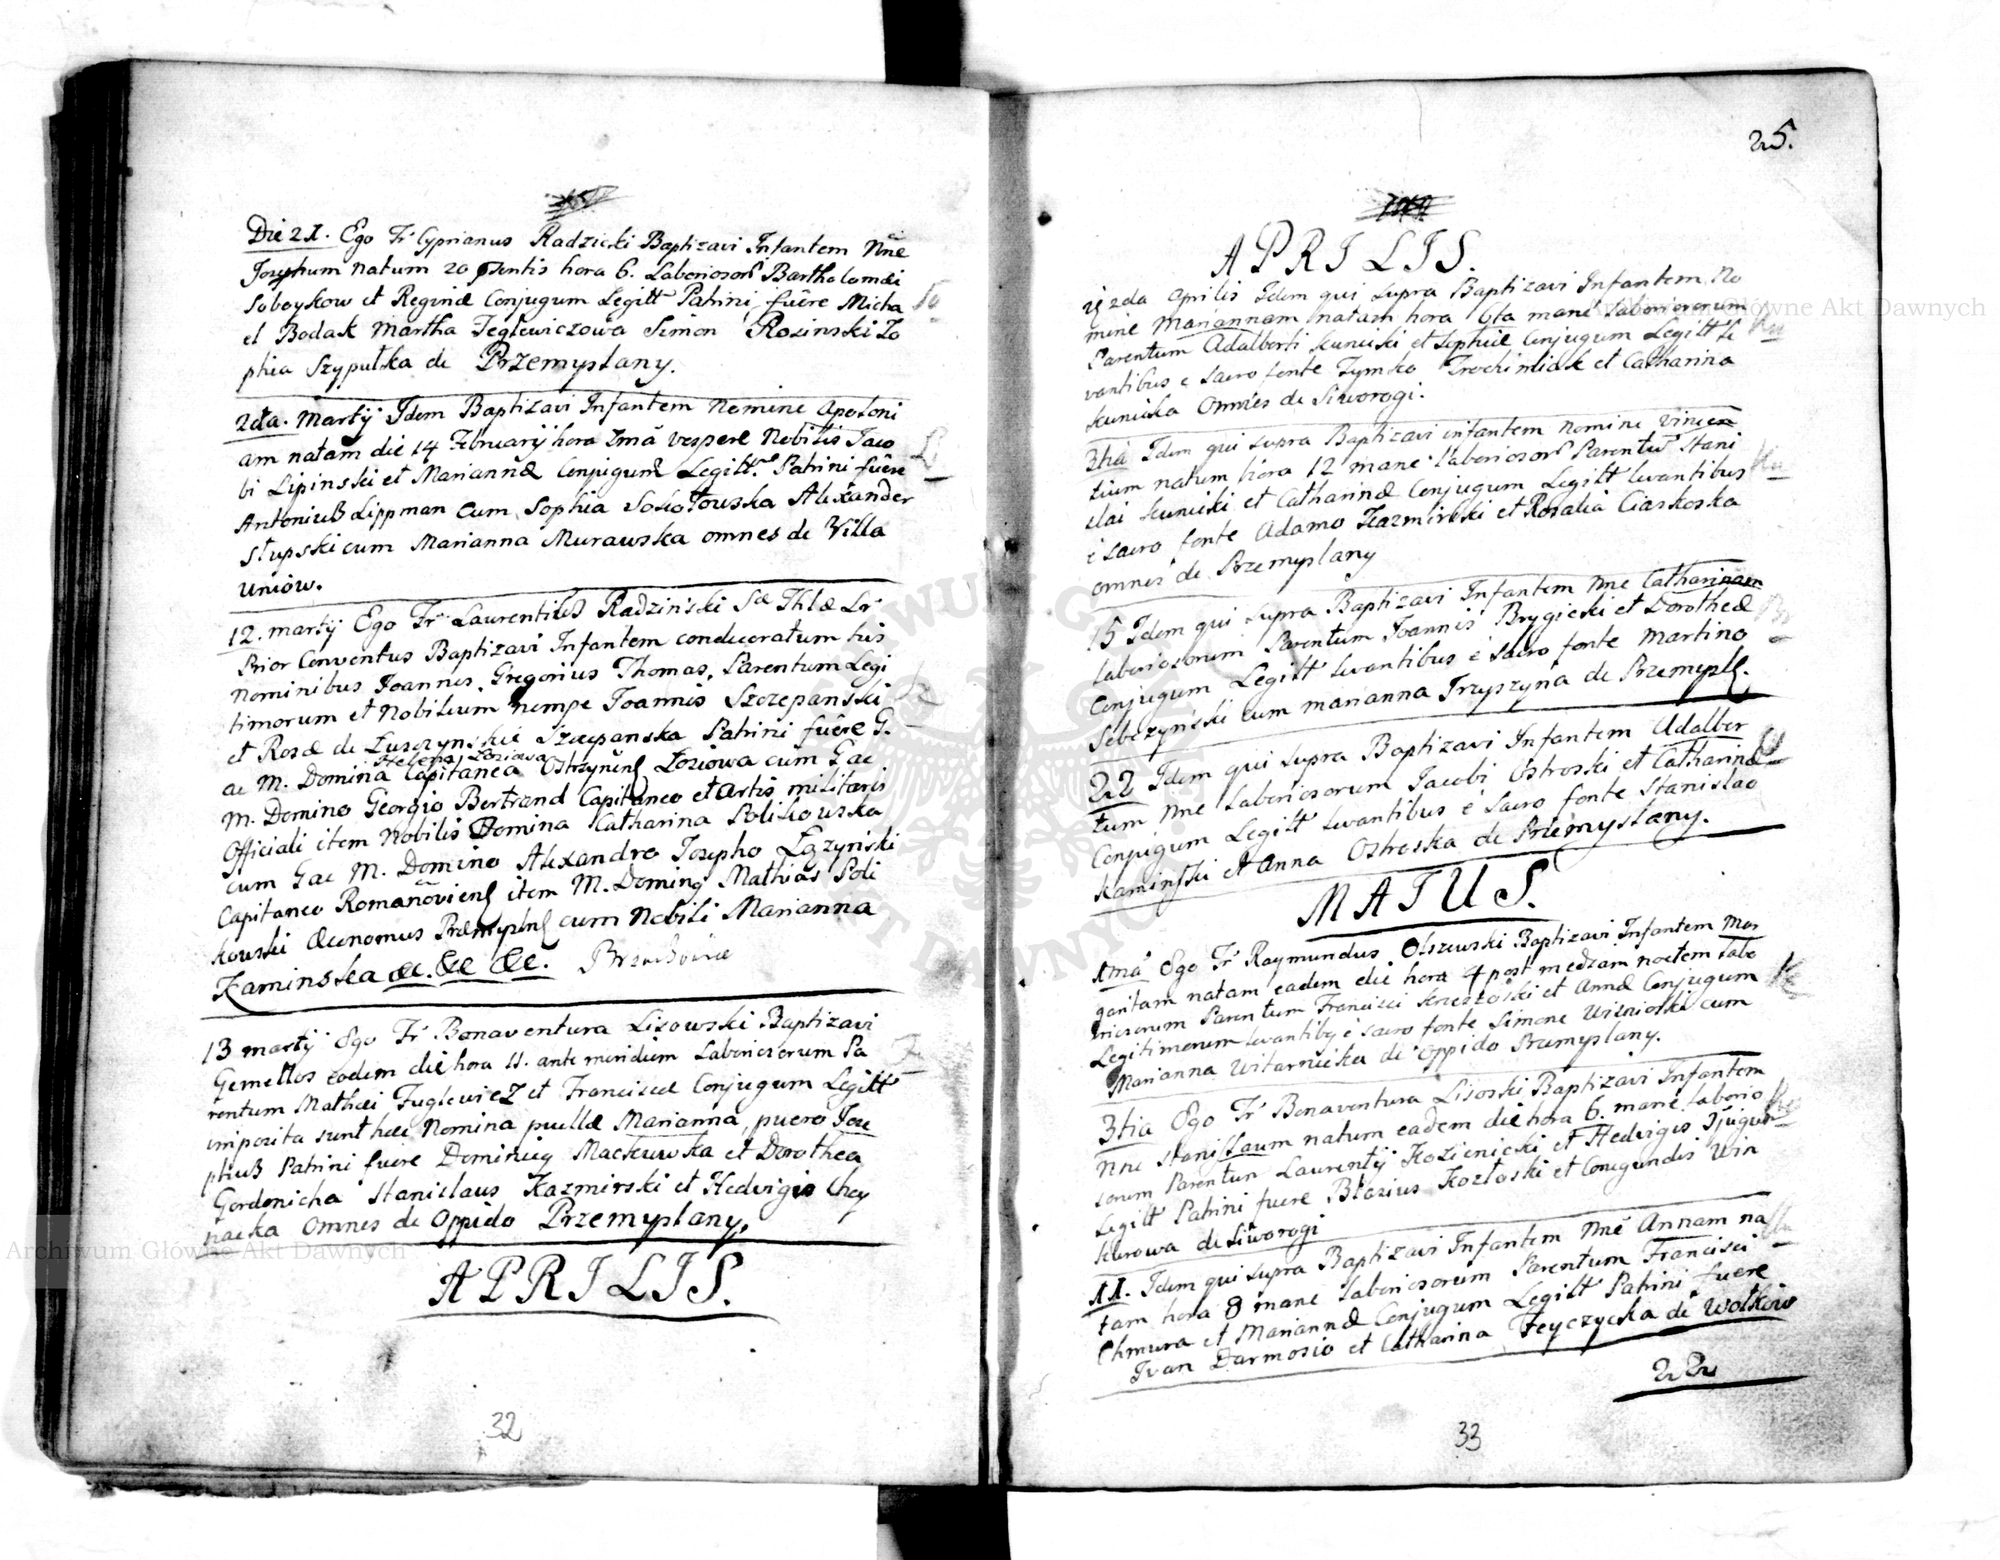 Die 21. Ego Fr Cyprianus Radzicki Baptizavi Infantem Nñe
Josephum natum 20 psentis hora 6. Laboriosorũ Bartholomæi
Soboykow et Reginæ Conjugum Legitt Patrini fuêre Micha
el Bodak Martha Teglewiczowa Simon Rosinski Zo
phia Szypułka de Przemyslany.
2da. Martÿ Idem Baptizavi Infantem Nomine Apoloni
am natam die 14 Februarÿ hora 2mâ vespere Nobilis Jaco
bi Lipinski et Mariannæ Conjugum Legitt. Patrini fuêre
Antonius Lippman cum Sophia Sokołowska Alexander
Słupski cum Marianna Murawska omnes de Villa
Uniów.
12. martÿ Ego Fr Laurentius Radzinski Sæ Thlæ Lr
Prior Conventus Baptizavi Infantem condecoratum his
Nominibus Joannes, Gregorius Thomas, Parentum Legi
timorum et Nobilium nempe Joannis Szczepanski
et Rosæ de Szczepanska Patrini fuêre G.
Helena Łosiowa
ac M. Domina Capitanea Łosiowa cum Gac
M. Domino Georgio Bertrand Capitaneo et Artis militaris
Officiali item Nobilis Domina Catharina Polikowska
cum Gac M. Domino Alexandro Josepho
Capitaneo item M. Doming Mathias Poli
kowski Œconomus cum Nobili Marianna
Kaminska &c. &c &c.
13 martÿ Ego Fr Bonaventura Lisowski Baptizavi
Gemellos eodem die hora 11. ante meridiem Laboriosorum Pa
rentum Mathæi Fuglewicz et Franciscæ Conjugum Legitt
imposita sunt hæc Nomina puellæ Marianna, puero Jose
phus Patrini fuere Mackuwka et Dorothea
Gordonicha Stanislaus Kazmirski et Hedvigis Chey
nacka Omnes de Oppido Przemyslany.
APRILIS.
32
25.
APRILIS.
2da Aprilis Idem qui supra Baptizavi Infantem No
mine Mariannam natam hora 6ta mane Laboriosorum
Parentum Adalberti Kunicki et Sophiæ Conjugum Legitt Le
vantibus e sacro fonte Tymko Trochimiak et Catharina
Kunicka Omnes de Siworogi.
3tia Idem qui supra Baptizavi infantem nomine Vincen
tium natum hora 12 mane Laboriosorũ Parentũ Stani
slai Kunicki et Catharinæ Conjugum Legitt levantibus
e sacro fonte Adamo Kazmirski et Rosalia Ciaskoska
omnes de Przemyslany
15 Idem qui supra Baptizavi Infantem Nne Catharinam
laboriosorum Parentum Joannis Brygicki et Dorotheæ
Conjugum Legitt levantibus e sacro fonte Martino
Sebczynski cum Marianna Tryszyna de Przemysl.
22 Idem qui supra Baptizavi Infantem Adalber
tum Nne Laboriosorum Jacobi Ostroski et Catharinæ
Conjugum Legitt levantibus e sacro fonte Stanislao
Kaminski et Anna Ostroska de Przemyslany.
MAIUS.
1ma Ego Fr Raymundus Olszewski Baptizavi Infantem Mar
garitam natam eadem die hora 4 post mediam noctem Labo
riosorum Parentum Francisci et Annæ Conjugum
Legitimorum levantibg e sacro fonte Simone Wisnioski cum
Marianna Witarnicka de Oppido Przemyslany.
3tia Ego Fr Bonaventura Lisoski Baptizavi Infantem
Nne Stanislaum natum eadem die hora 6. mane Laborio
sorum Parentum Laurentÿ Kozienicki et Hedvigis Cjugum
Legitt Patrini fuere Blasius Kozłoski et Conegundis Win
klerowa de Siworogi
11. Idem qui supra Baptizavi Infantem Nne Annam na
tam hora 8 mane Laboriosorum Parentum Francisci
Chmura et Mariannæ Conjugum Legitt Patrini fuere
Ivan Darmosio et Catharina Feyczycka de Wołkow
22
33
Archiwum Główne Akt Dawnych
Archiwum Główne Akt Dawnych
ARCHIWUM GŁÓWNE AKT DAWNYCH